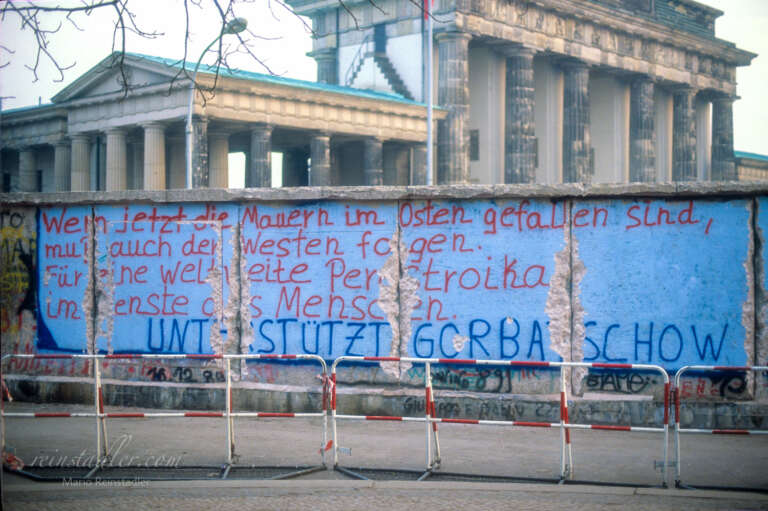 Wenn jetzt die Mauern im Osten gefallen sind,
muß auch der Westen folgen.
Für eine weltweite Perestroika
im Dienste des Menschen.
UNTERSTÜTZT GORBATSCHOW
16.12.89
reinstadler.com
Mario Reinstadler